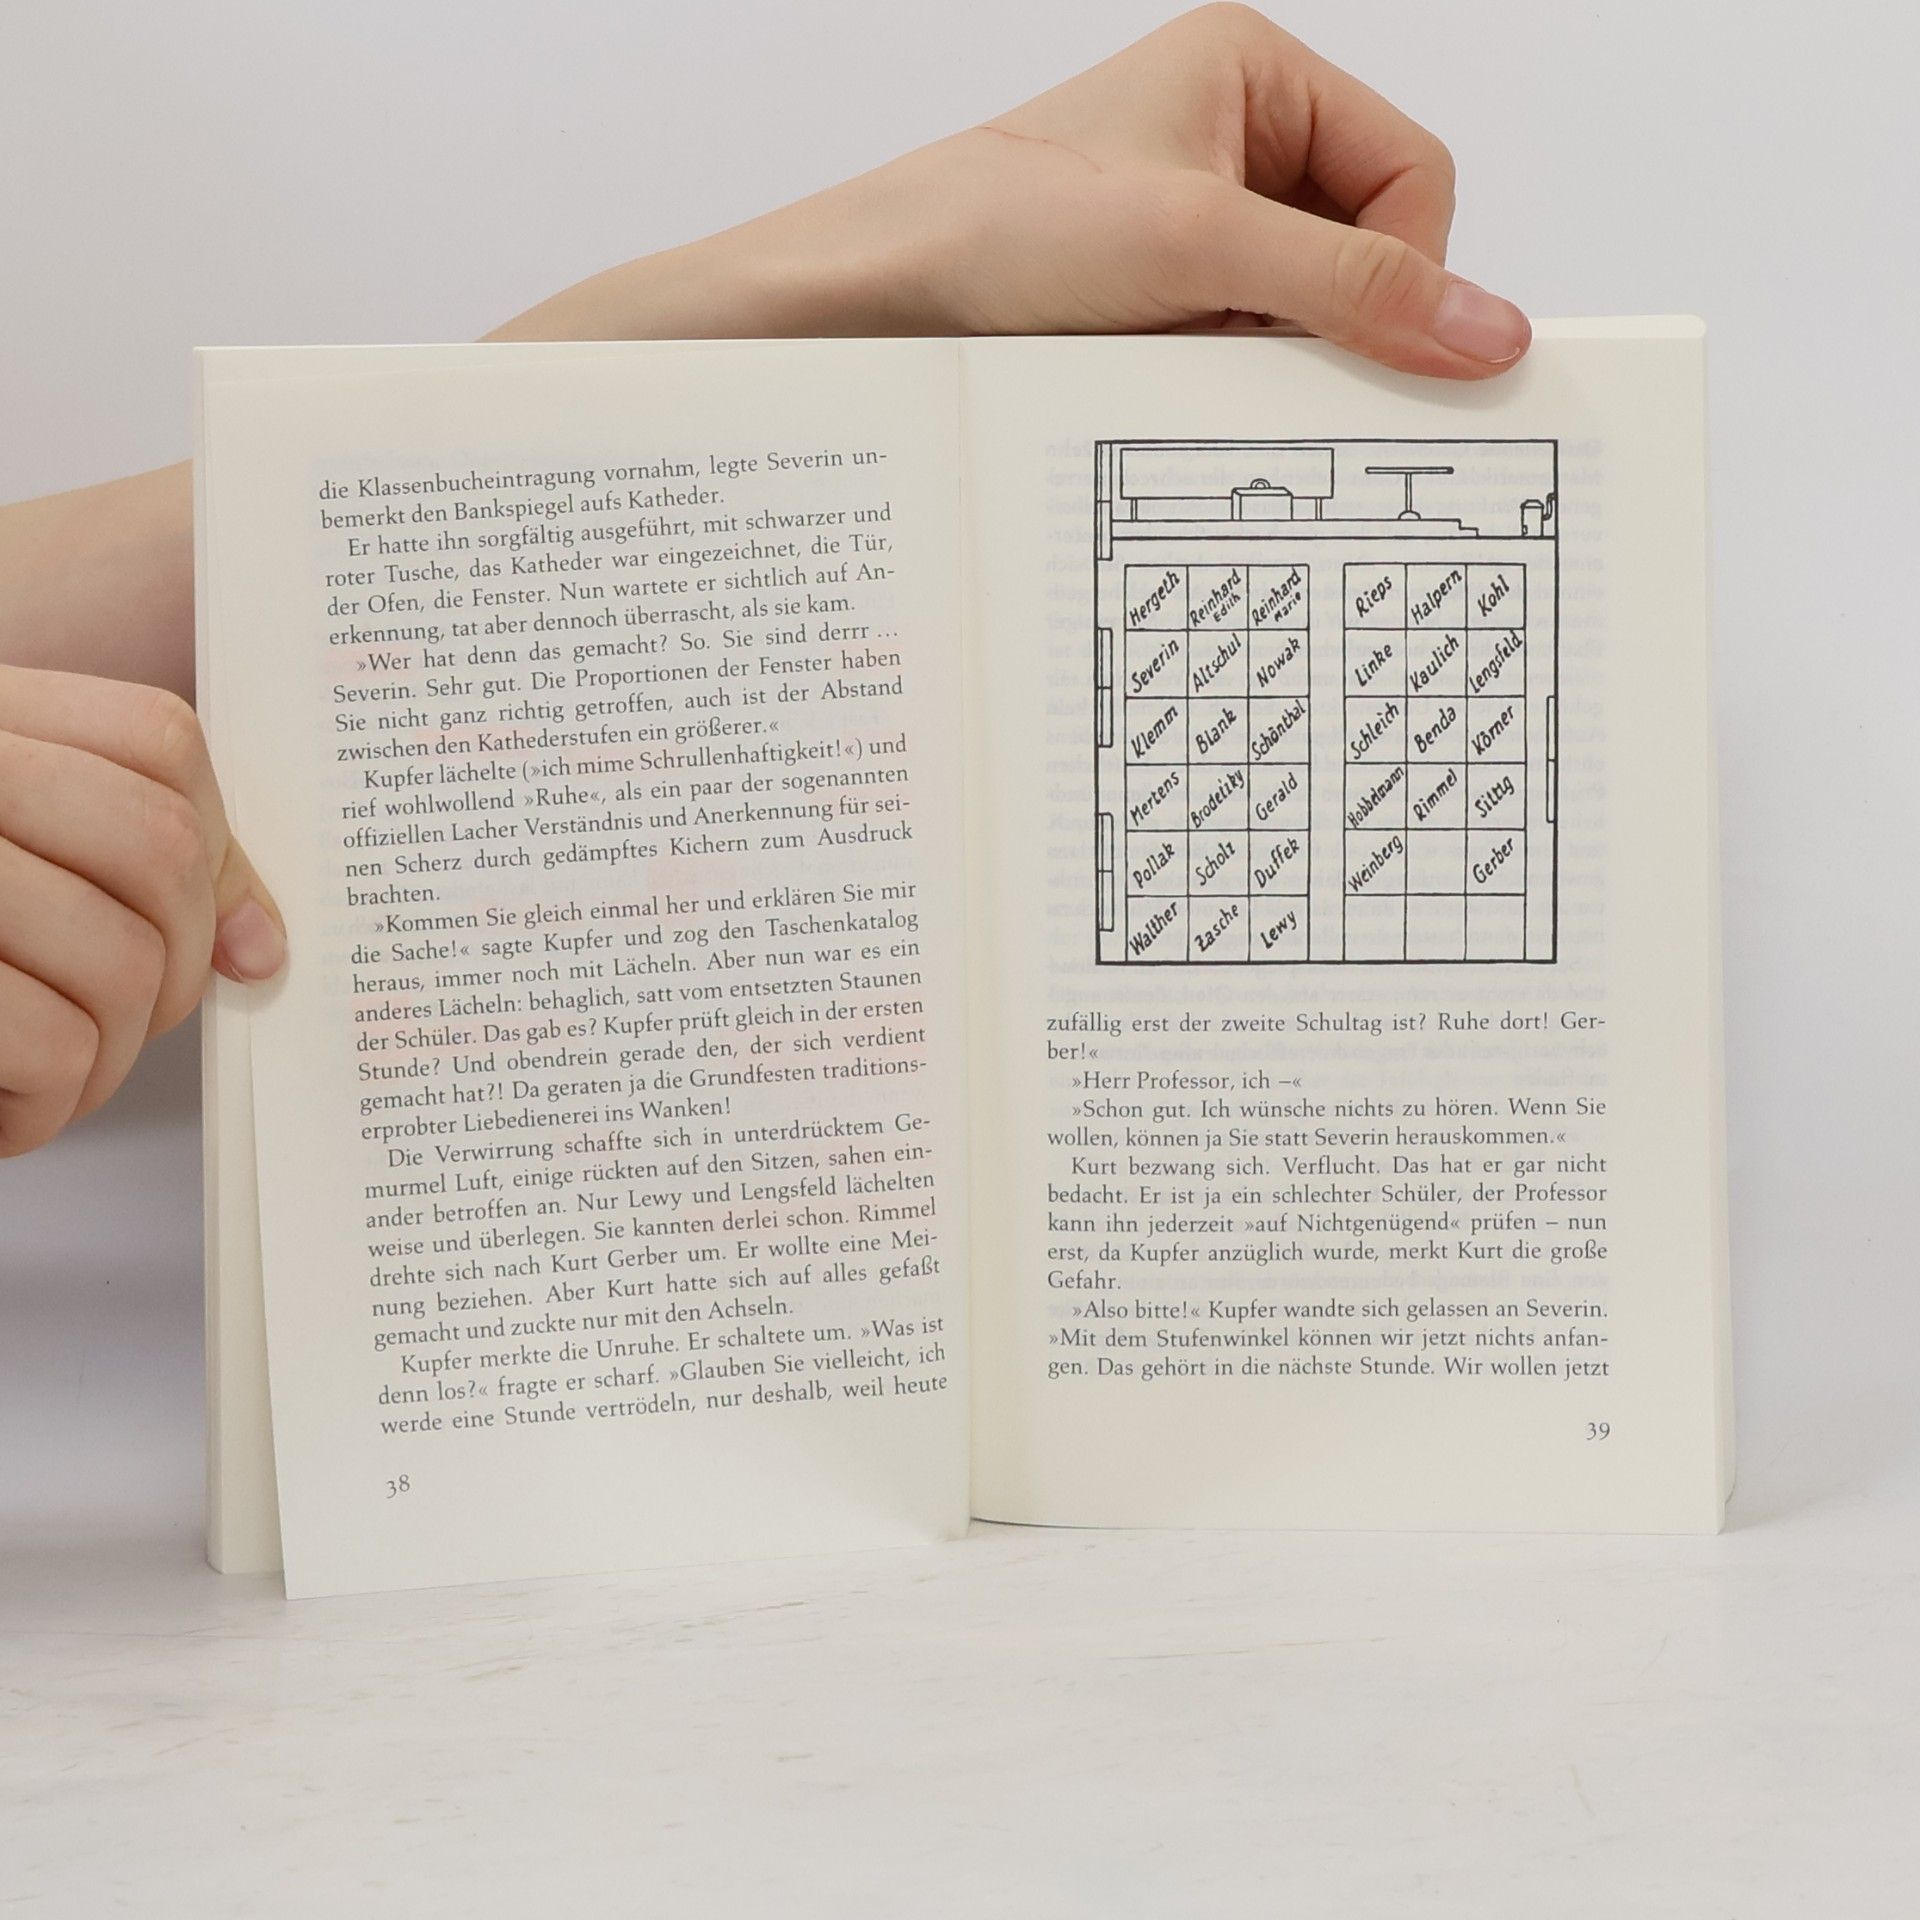 die Klassenbucheintragung vornahm, legte Severin un-
bemerkt den Bankspiegel aufs Katheder.
Er hatte ihn sorgfältig ausgeführt, mit schwarzer und
roter Tusche, das Katheder war eingezeichnet, die Tür,
der Ofen, die Fenster. Nun wartete er sichtlich auf An-
erkennung, tat aber dennoch überrascht, als sie kam.
»Wer hat denn das gemacht? So. Sie sind derrr ...
Severin. Sehr gut. Die Proportionen der Fenster haben
Sie nicht ganz richtig getroffen, auch ist der Abstand
zwischen den Kathederstufen ein größerer.«
Kupfer lächelte (»ich mime Schrullenhaftigkeit!«) und
rief wohlwollend »Ruhe«, als ein paar der sogenannten
offiziellen Lacher Verständnis und Anerkennung für sei-
nen Scherz durch gedämpftes Kichern zum Ausdruck
brachten.
»Kommen Sie gleich einmal her und erklären Sie mir
die Sache!« sagte Kupfer und zog den Taschenkatalog
heraus, immer noch mit Lächeln. Aber nun war es ein
anderes Lächeln: behaglich, satt vom entsetzten Staunen
der Schüler. Das gab es? Kupfer prüft gleich in der ersten
Stunde? Und obendrein gerade den, der sich verdient
gemacht hat?! Da geraten ja die Grundfesten traditions-
erprobter Liebedienerei ins Wanken!
Die Verwirrung schaffte sich in unterdrücktem Ge-
murmel Luft, einige rückten auf den Sitzen, sahen ein-
ander betroffen an. Nur Lewy und Lengsfeld lächelten
weise und überlegen. Sie kannten derlei schon. Rimmel
drehte sich nach Kurt Gerber um. Er wollte eine Mei-
nung beziehen. Aber Kurt hatte sich auf alles gefaßt
gemacht und zuckte nur mit den Achseln.
Kupfer merkte die Unruhe. Er schaltete um. »Was ist
denn los?« fragte er scharf. »Glauben Sie vielleicht, ich
werde eine Stunde vertrödeln, nur deshalb, weil heute
38
Hergeth Reinhard Edith Reinhard Marie Rieps Halpern Kohl
Severin Altschul Nowak Linke Kaulich Lengsfeld
Klemm Blank Schönthal Schleich Benda Körner
Mertens Brodetzky Gerald Hobbelmann Rimmel Sittig
Pollak Scholz Duffek Weinberg Gerber
Walther Zasche Lewy
zufällig erst der zweite Schultag ist? Ruhe dort! Ger-
ber!«
»Herr Professor, ich –«
»Schon gut. Ich wünsche nichts zu hören. Wenn Sie
wollen, können ja Sie statt Severin herauskommen.«
Kurt bezwang sich. Verflucht. Das hat er gar nicht
bedacht. Er ist ja ein schlechter Schüler, der Professor
kann ihn jederzeit »auf Nichtgenügend« prüfen – nun
erst, da Kupfer anzüglich wurde, merkt Kurt die große
Gefahr.
»Also bitte!« Kupfer wandte sich gelassen an Severin.
»Mit dem Stufenwinkel können wir jetzt nichts anfan-
gen. Das gehört in die nächste Stunde. Wir wollen jetzt
39